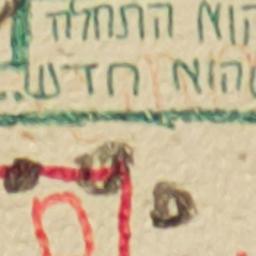 הוא התחלה
שהוא חדש..